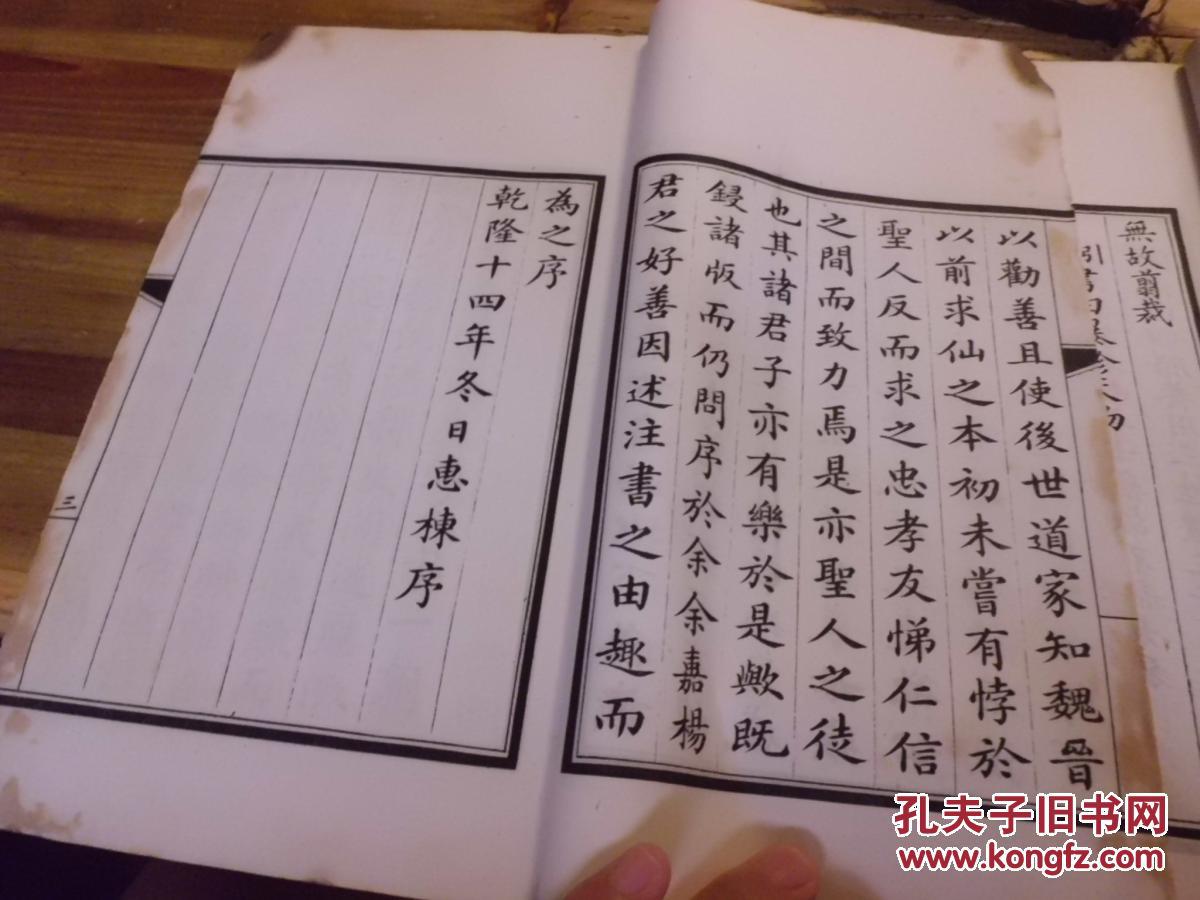 無故翦裁
以勸善且使後世道家知魏晉
以前求仙之本初未嘗有悖於
聖人反而求之忠孝友悌仁信
之間而致力焉是亦聖人之徒
也其諸君子亦有樂於是歟既
鋟諸版而仍問序於余余嘉楊
君之好善因述注書之由趣而
為之序
乾隆十四年冬日惠棟序
三
孔夫子旧书网
www.kongfz.com